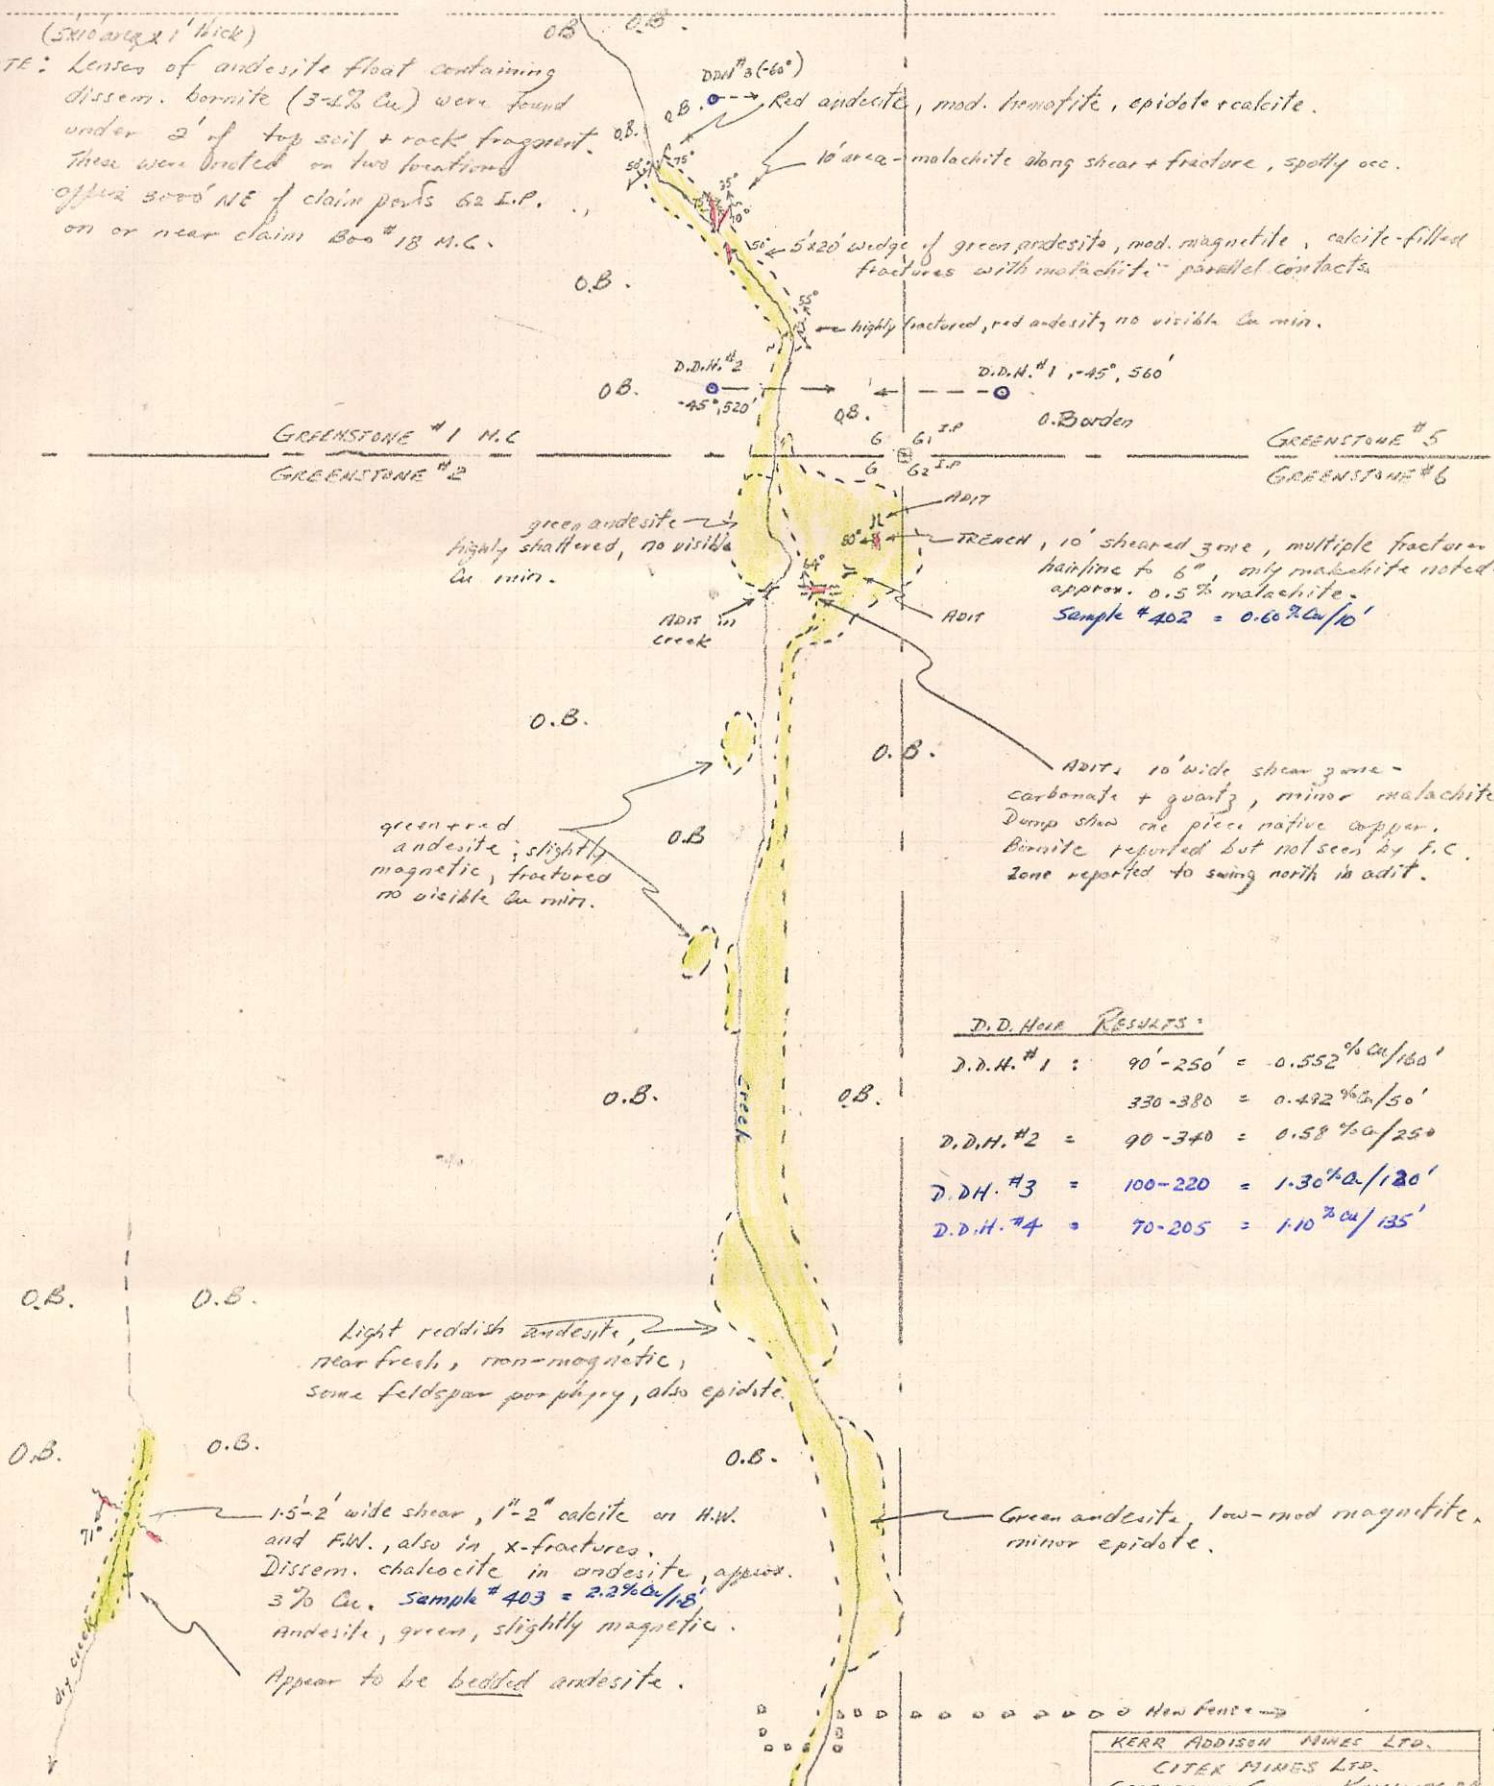 (5x10 area x 1' thick)
TE: Lenses of andesite float containing
dissem. bornite (3-4% Cu) were found
under 2' of top soil + rock fragment.
These were noted on two locations
3000' NE of claim posts 62 I.P.
on or near claim Boo #18 M.C.
O.B
O.B.
DDH #3 (-60°)
O.B.
O.B.
Red andesite, mod. hematite, epidote + calcite.
50°
75°
10' area - malachite along shear + fracture, spotty occ.
35°
70°
50°
5'x20' wedge of green andesite, mod. magnetite, calcite-filled
fractures with malachite - parallel contacts.
O.B.
55°
highly fractured, red andesite, no visible Cu min.
D.D.H. #2
-45°, 520'
O.B.
D.D.H. #1, -45°, 560'
O.B.
O.Burden
GREENSTONE #1 M.C
GREENSTONE #2
6
61 I.P
6
62 I.P
GREENSTONE #5
GREENSTONE #6
green andesite
highly shattered, no visible
Cu min.
ADIT
80°
TRENCH, 10' sheared zone, multiple fractures
hairline to 6", only malachite noted
approx. 0.5% malachite.
Sample #402 = 0.60% Cu/10'
64°
ADIT in
creek
ADIT
O.B.
O.B.
ADIT, 10' wide shear zone -
carbonate + quartz, minor malachite
Dump show one piece native copper.
Bornite reported but not seen by F.C.
Zone reported to swing north in adit.
green + red
andesite; slightly
magnetic, fractured
no visible Cu min.
O.B
D.D. Hole RESULTS:
D.D.H. #1 : 90'-250' = 0.552 % Cu/160'
330-380 = 0.492 % Cu/50'
D.D.H. #2 = 90-340 = 0.58 % Cu/250
D.DH. #3 = 100-220 = 1.30% Cu/120'
D.D.H. #4 = 70-205 = 1.10 % Cu/135'
O.B.
Creek
O.B.
O.B.
O.B.
Light reddish andesite,
near fresh, non-magnetic,
some feldspar porphyry, also epidote.
O.B.
O.B.
O.B.
71°
1.5'-2' wide shear, 1"-2" calcite on H.W.
and F.W., also in x-fractures.
Dissem. chalcocite in andesite, approx.
3% Cu. Sample #403 = 2.2% Cu/1.8'
Andesite, green, slightly magnetic.
Green andesite, low-mod magnetite,
minor epidote.
dry creek
Appear to be bedded andesite.
New Fence
KERR ADDISON MINES LTD.
CITEX MINES LTD.